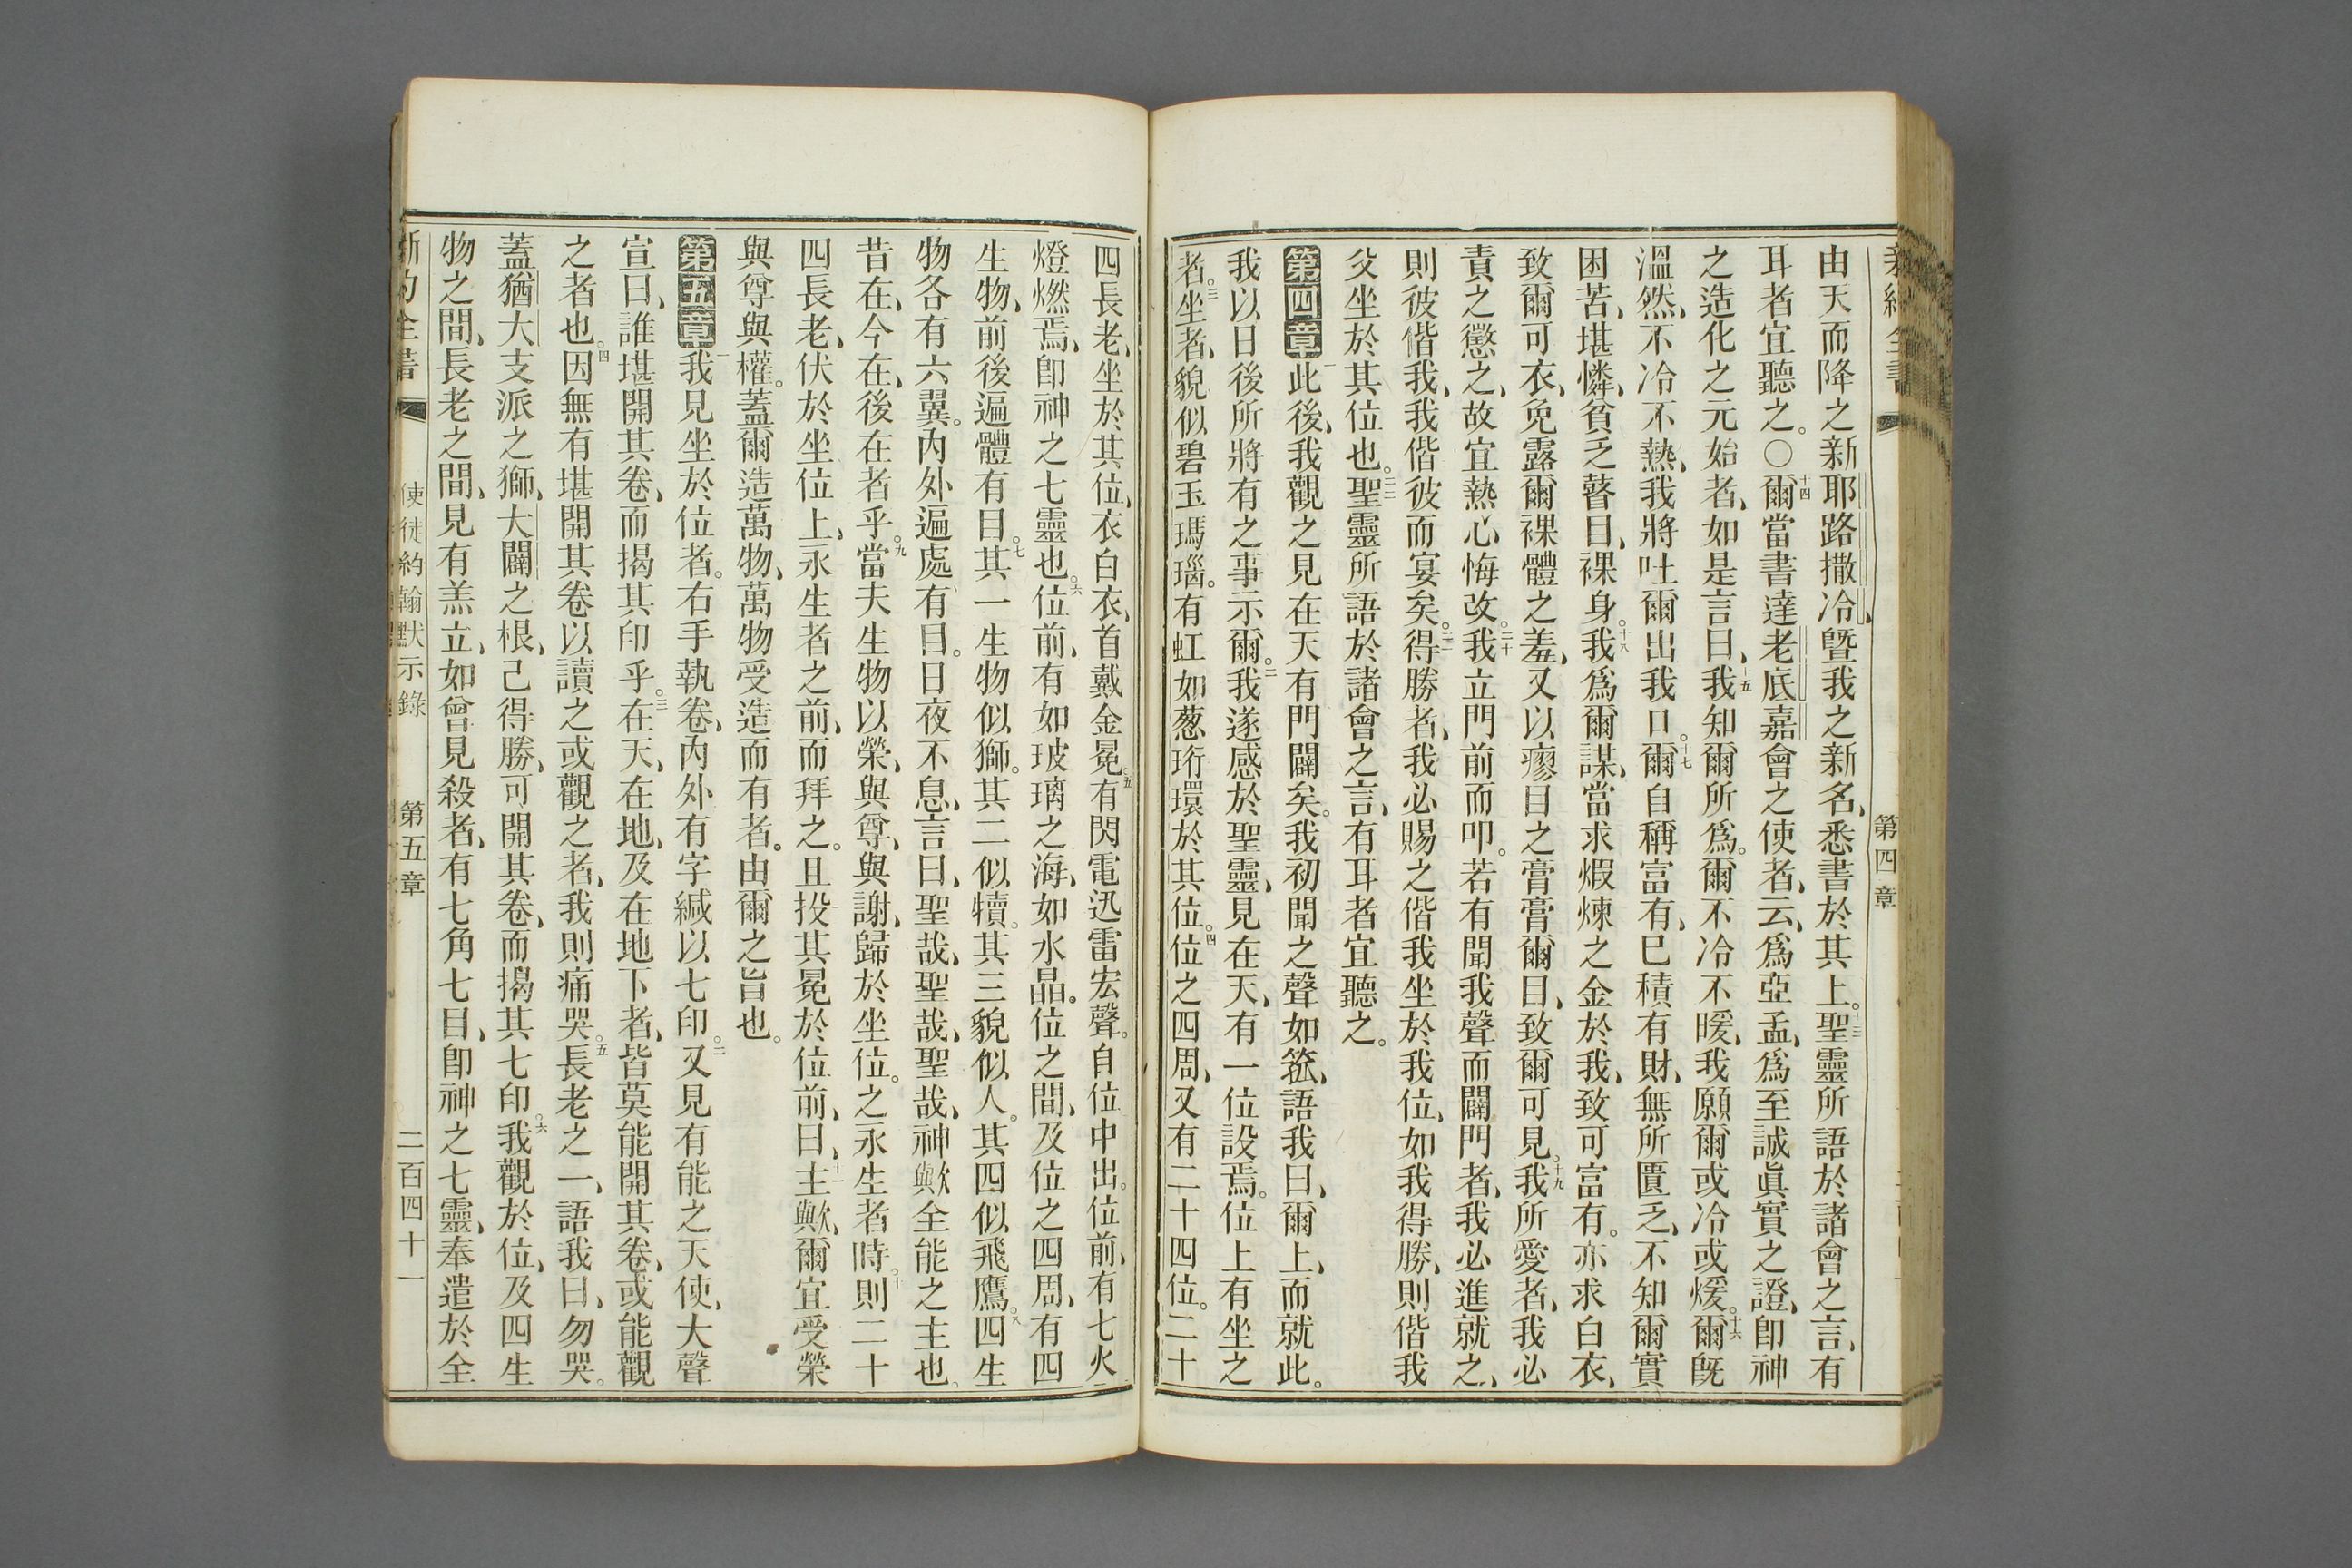 第四章
由天而降之新耶路撒冷、曁我之新名、悉書於其上。十三聖靈所語於諸會之言、有
耳者宜聽之。〇十四爾當書達老底嘉會之使者、云、爲亞孟、爲至誠眞實之證、卽神
之造化之元始者、如是言曰、十五我知爾所爲。爾不冷不暖、我願爾或冷或煖。十六爾旣
溫然、不冷不熱、我將吐爾出我口。十七爾自稱富有、已積有財、無所匱乏、不知爾實
困苦、堪憐、貧乏瞽目、裸身。十八我爲爾謀、當求煆煉之金於我、致可富有。亦求白衣、
致爾可衣、免露爾裸體之羞、又以瘳目之膏膏爾目、致爾可見。十九我所愛者、我必
責之懲之、故宜熱心悔改。二十我立門前而叩。若有聞我聲而闢門者、我必進就之、
則彼偕我、我偕彼而宴矣。二一得勝者、我必賜之偕我坐於我位、如我得勝、則偕我
父坐於其位也。二二聖靈所語於諸會之言、有耳者宜聽之。
第四章一此後、我觀之見在天有門闢矣。我初聞之聲如箛、語我曰、爾上、而就此。
我以日後所將有之事示爾。二我遂感於聖靈、見在天、有一位設焉。位上有坐之
者。三坐者、貌似碧玉瑪瑙。有虹如葱珩環於其位。四位之四周、又有二十四位。二十
四長老、坐於其位、衣白衣、首戴金冕。五有閃電迅雷宏聲。自位中出。位前、有七火
燈燃焉、卽神之七靈也。六位前、有如玻璃之海、如水晶。位之間、及位之四周、有四
生物、前後遍體有目。七其一生物似獅。其二似犢。其三貌似人。其四似飛鷹。八四生
物各有六翼。內外遍處有目。日夜不息、言曰、聖哉、聖哉、聖哉、神歟全能之主也、
昔在、今在、後在者乎。九當夫生物以榮、與尊、與謝、歸於坐位。之永生者時。十則二十
四長老、伏於坐位上、永生者之前、而拜之。且投其冕於位前、曰、十一主歟、爾宜受榮
與尊與權。蓋爾造萬物、萬物受造而有者。由爾之旨也。
第五章一我見坐於位者。右手執卷、內外有字緘以七印。二又見有能之天使、大聲
宣曰、誰堪開其卷、而揭其印乎。三在天、在地、及在地下者、皆莫能開其卷、或能觀
之者也。四因無有堪開其卷以讀之或觀之者、我則痛哭。五長老之一、語我曰、勿哭。
蓋猶大支派之獅、大闢之根、己得勝、可開其卷、而揭其七印。六我觀於位、及四生
物之間、長老之間、見有羔立、如曾見殺者、有七角七目、卽神之七靈、奉遣於全
新約全書 使徒約翰默示錄 第五章 二百四十一